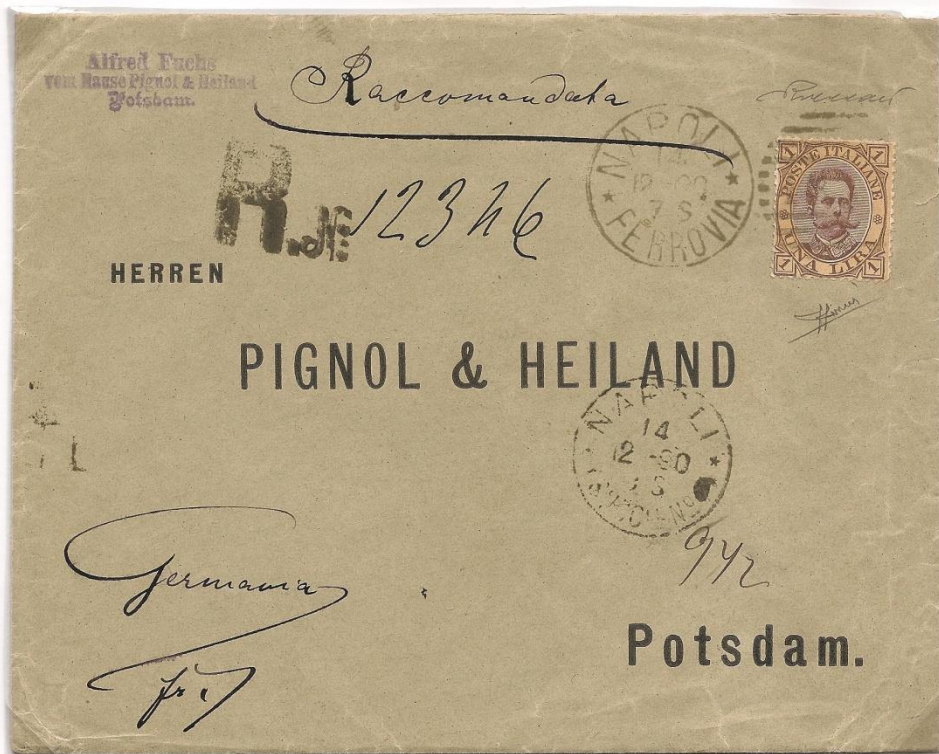 Alfred Fuchs
vom Hause Pignol & Heiland
Potsdam.
Raccomandata
NAPOLI
14
12 -90
7 S
FERROVIA
1 POSTE ITALIANE 1
1 UNA LIRA 1
R. №
12346
HERREN
PIGNOL & HEILAND
NAPOLI
14
12 -90
S
Germania
Potsdam.